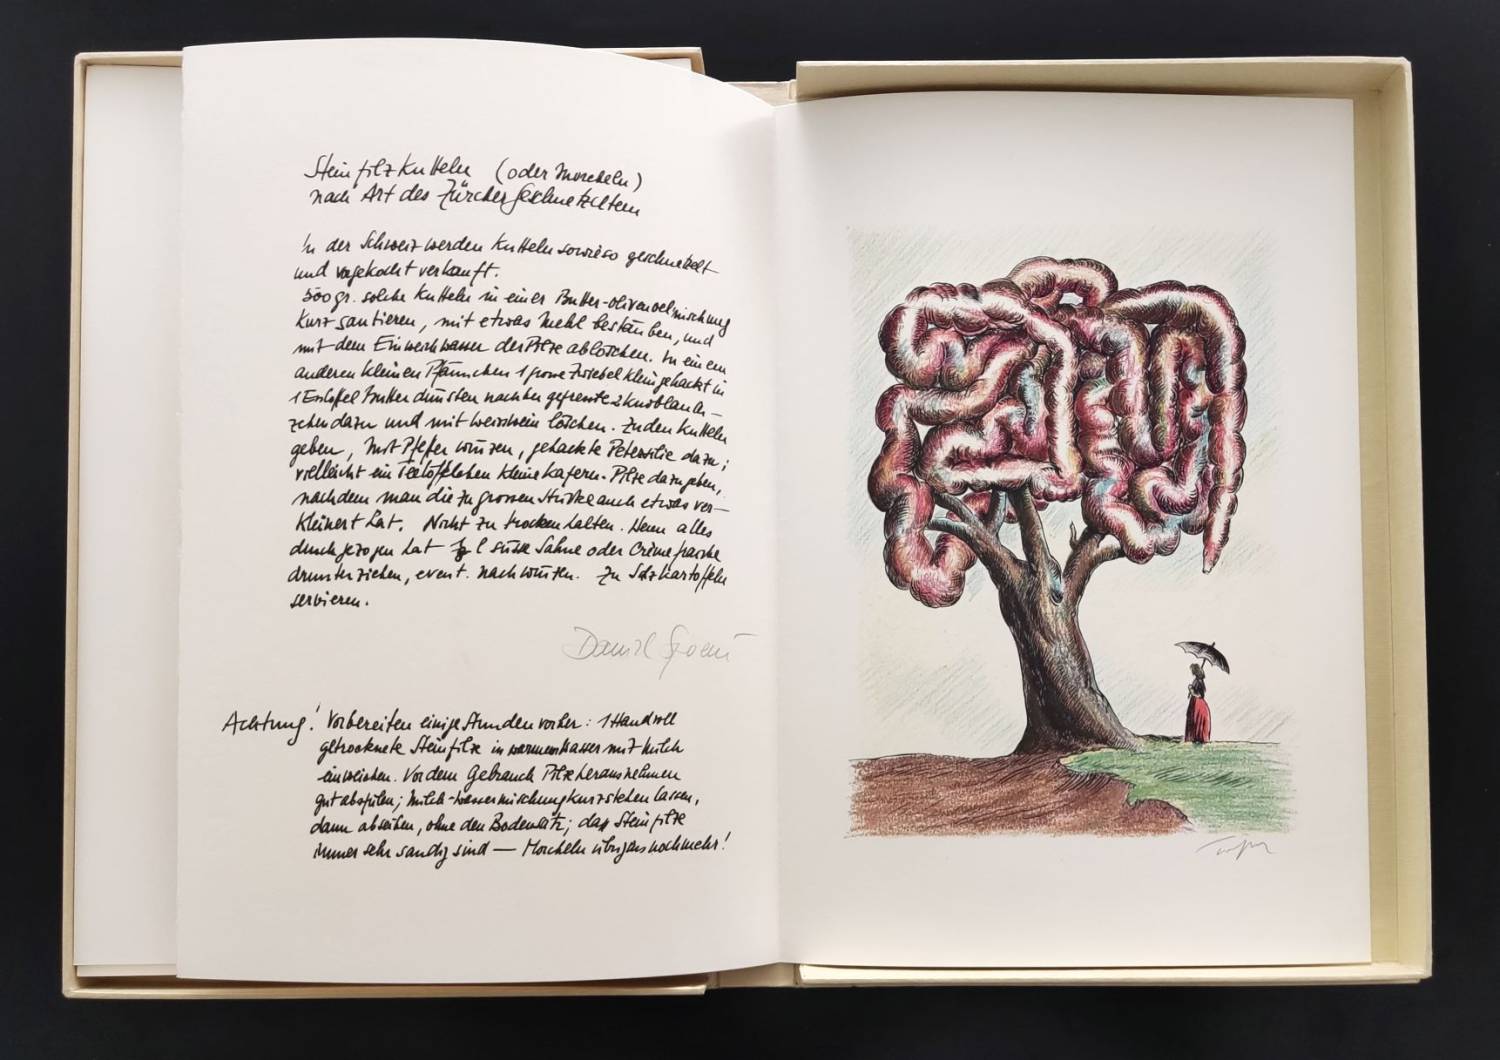 Steinpilzkutteln (oder Morcheln)
nach Art des Zürcher Geschnetzeltem
In der Schweiz werden Kutteln sowieso geschnetzelt
und vorgekocht verkauft.
500 gr. solche Kutteln in einer Butter-olivenoelmischung
kurz sautieren, mit etwas Mehl bestäuben, und
mit dem Einweichwasser der Pilze ablöschen. In einem
anderen kleinen Pfännchen 1 grosse Zwiebel klein gehackt in
1 Esslöfel Butter dünsten nachher gepresste 2 Knoblauch-
zehen dazu und mit weisswein löschen. Zu den Kutteln
geben, mit Pfefer würzen, gehackte Petersilie dazu;
vielleicht ein Teelöfelchen kleine Kapern. Pilze dazugeben,
nachdem man die zu grossen Stücke auch etwas ver-
kleinert hat. Nicht zu trocken halten. Wenn alles
durchgezogen hat l süsse Sahne oder Crème fraiche
drunter ziehen, event. nachwürzen. Zu Salzkartoffeln
servieren.
Daniel Spoerri
Achtung! Vorbereiten einige Stunden vorher: 1 Handvoll
getrocknete Steinpilze in warmem Wasser mit Milch
einweichen. Vor dem Gebrauch Pilze herausnehmen
gut abspülen; Milch-wassermischung kurz stehen lassen,
dann abseihen, ohne den Bodensatz; da Steinpilze
immer sehr sandig sind — Morcheln übrigens noch mehr!